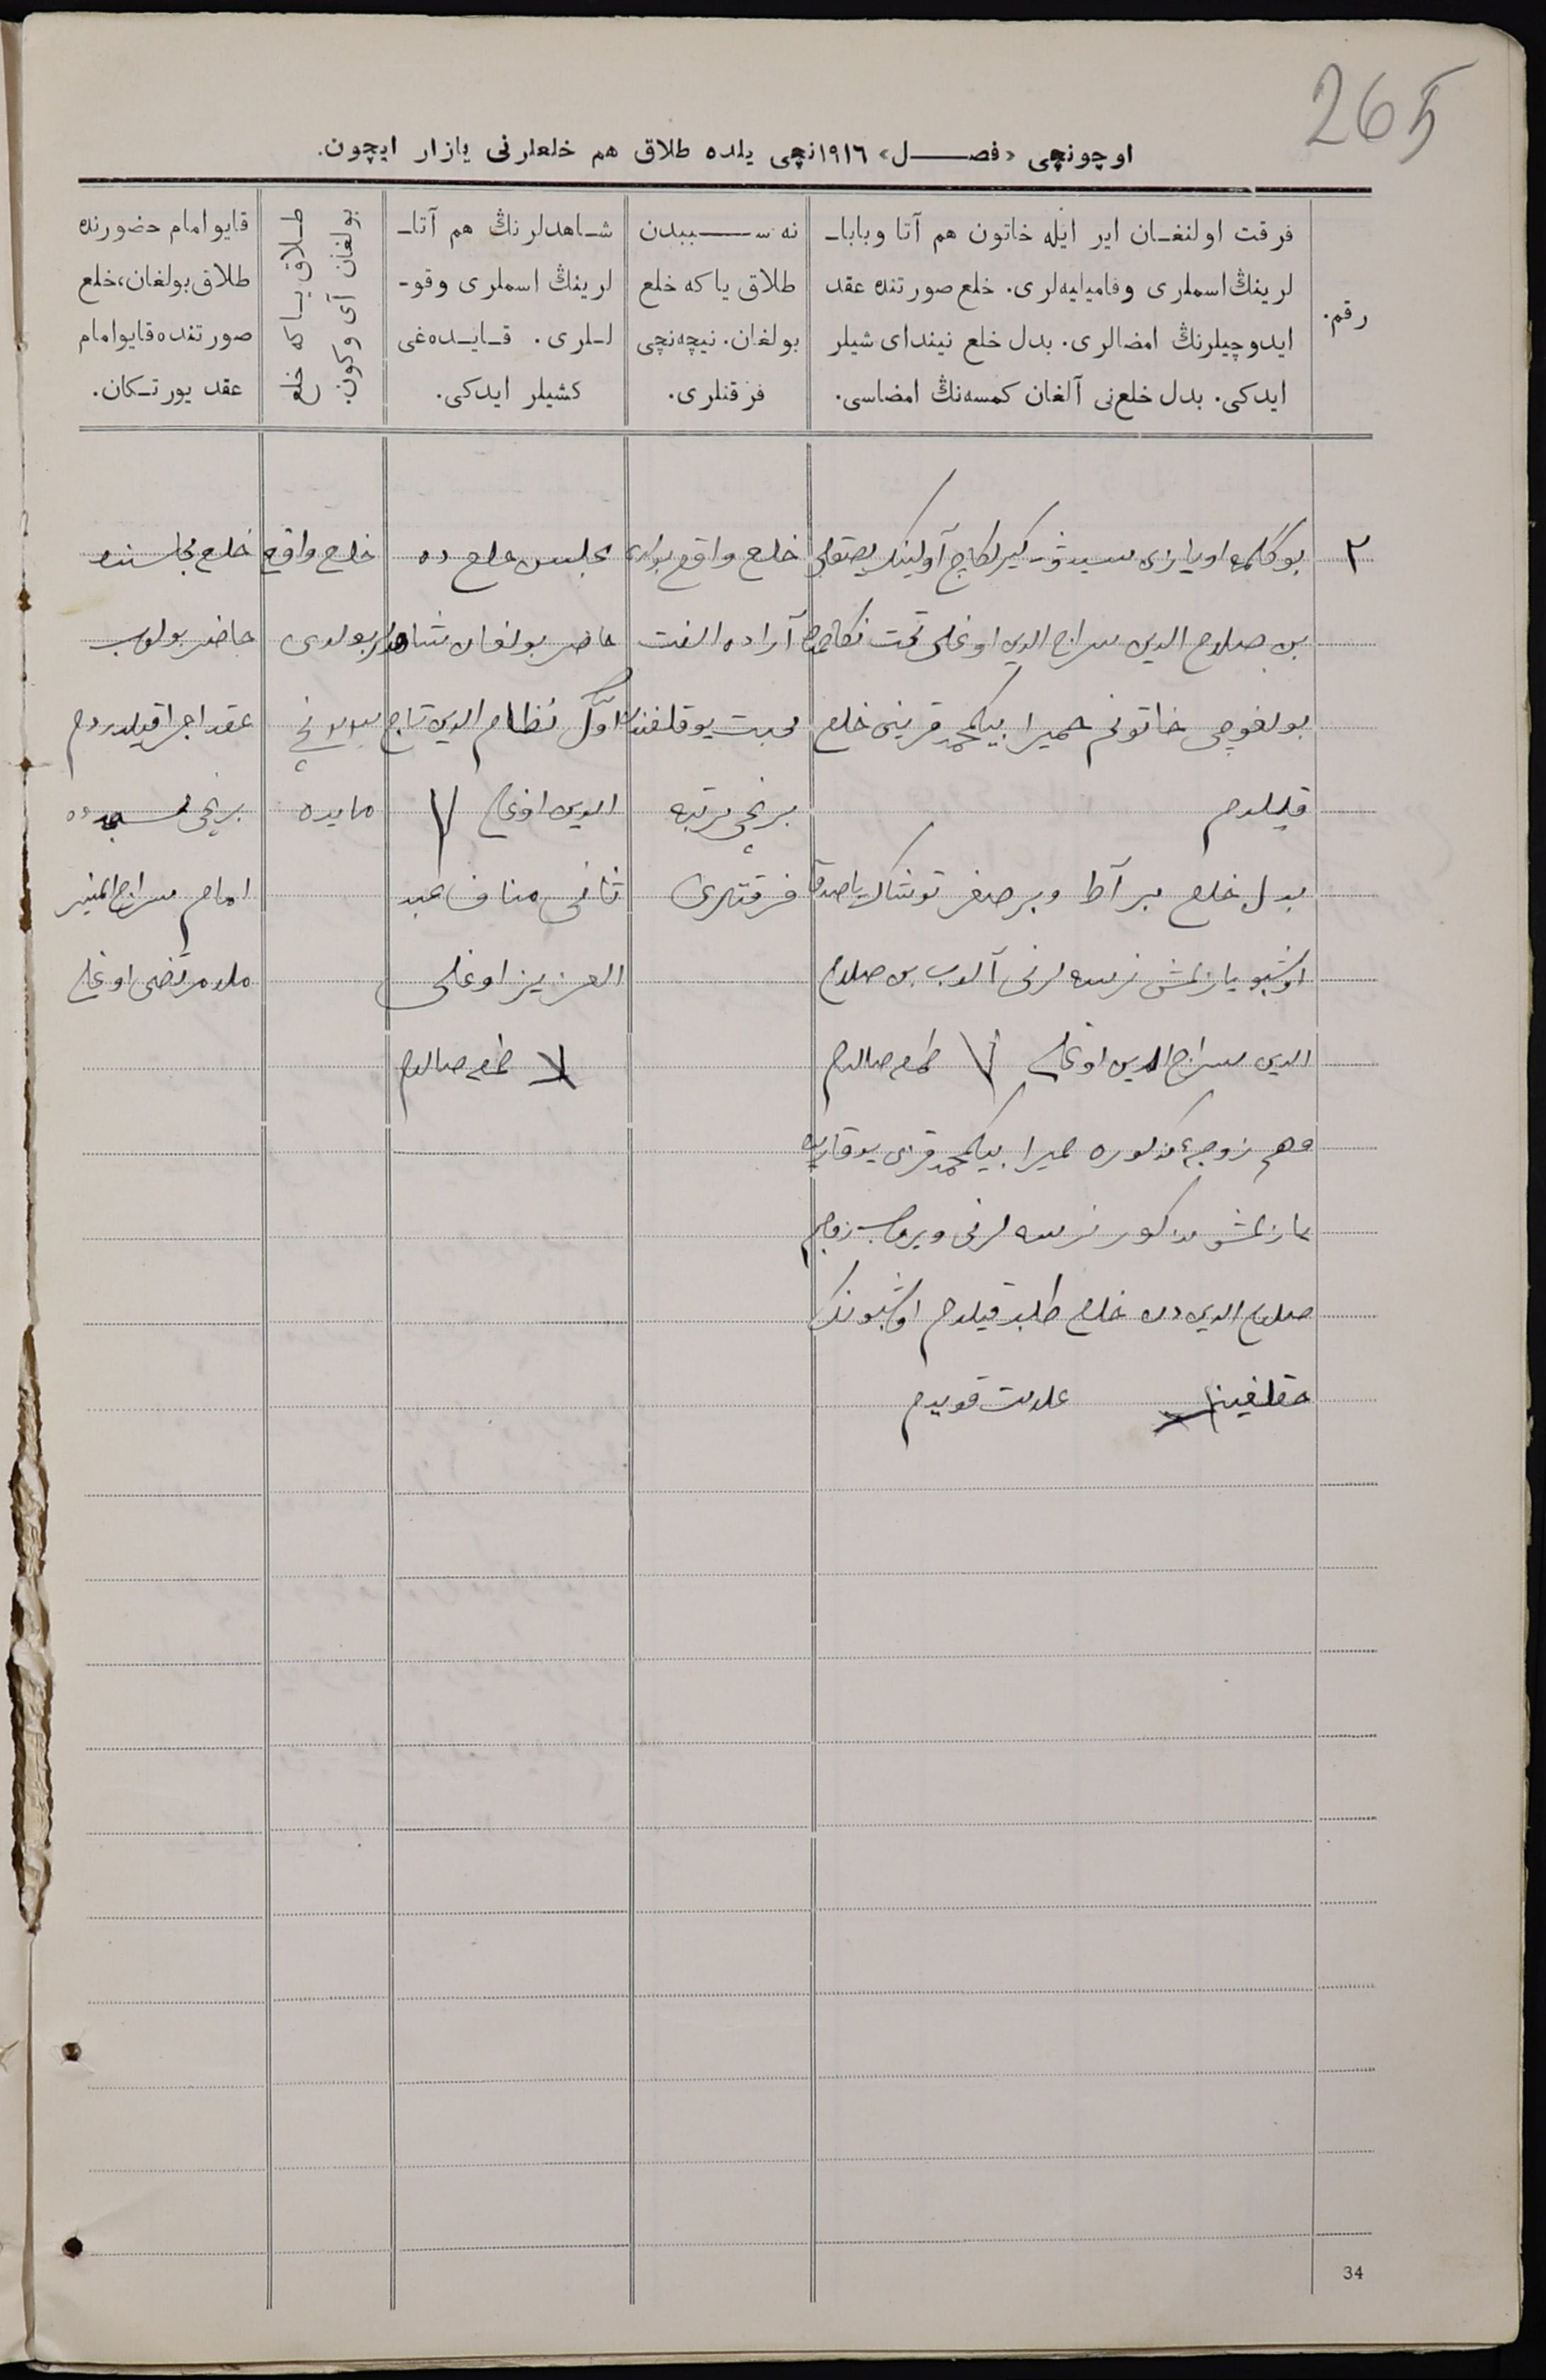 265
اوچونچی «فصل» ١٩١٦نچی یلده طلاق هم خلعلرنی یازار ایچون.
رقم.
فرقت اولنغان ایر ایله خاتون هم آتا وبابا-
لرینڭ اسملری وفامیلیه‌لری. خلع صورتنده عقد
ایدوچیلرنڭ امضالری. بدل خلع نیندای شیلر
ایدکی. بدل خلع‌نی آلغان کمسه‌نڭ امضاسی.
نه سببدن
طلاق یاکه خلع
بولغان. نیچه‌نچی
فرقتلری.
شاهدلرنڭ هم آتا-
لرینڭ اسملری وقو-
للری. قایده‌غی
کشیلر ایدکی.
طلاق یاکه خلع
بولغان آی وکون
قایو امام حضورنده
طلاق بولغان، خلع
صورتنده قایو امام
عقد یورتکان.
٢
بوگلمه اویازی آولینڭ
بن صلاح الدین سراج الدین اوغلی تحت نکاحمده
بولغوچی خاتونم حمیرا بیکمحمد قزینی خلع
قیلدم
بدل خلع بر آط وبر صغر توشاک یاصدق
اوشبو یازلمش نرسه لرنی آلوب بن صلاح
الدین سراج الدین اوغلی طمغه صالدم
وهم زوجهٔ مذکوره حمیرا بیکمحمد قزی یوقاریده
یازلمش مذکور نرسه لرنی ویروب زوجم
صلاح الدین دن خلع طلب قیلدم اوشبونڭ
حقلغینه علامت قویدم
خلع واقع بولدی
آراده الفت
محبت یوقلقدن
برنچی مرتبه
فرقتلری
مجلس خلع ده
حاضر بولغان شاهدلر
اوّل نظام الدین تاج
الدین اوغلی
ثانی مناف عبد
العزیز اوغلی
طمغه صالدم
خلع واقع
بولدی
نچی
مایده
خلع مجلسنده
حاضر بولوب
عقد اجرا قیلدردم
برنچی مسجدده
امام سراج المنیر
ملا مرتضی اوغلی
34